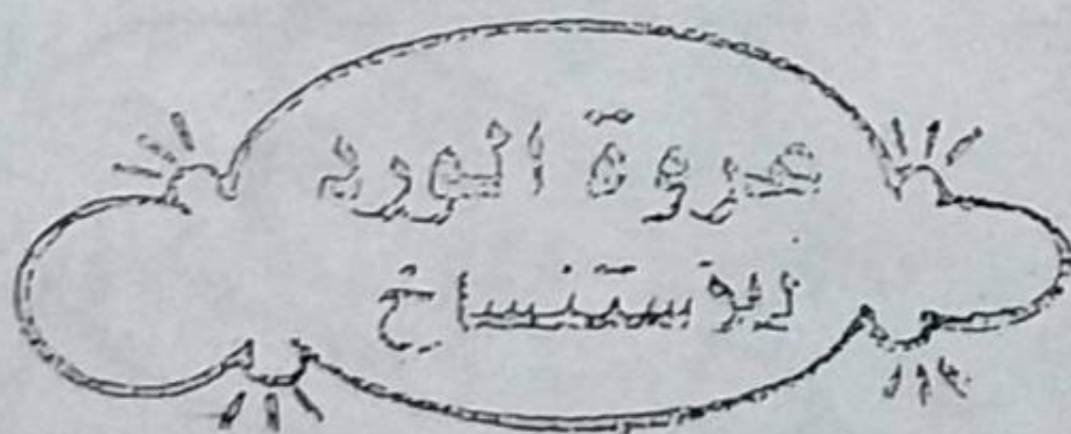 عروة الورد
للاستنساخ